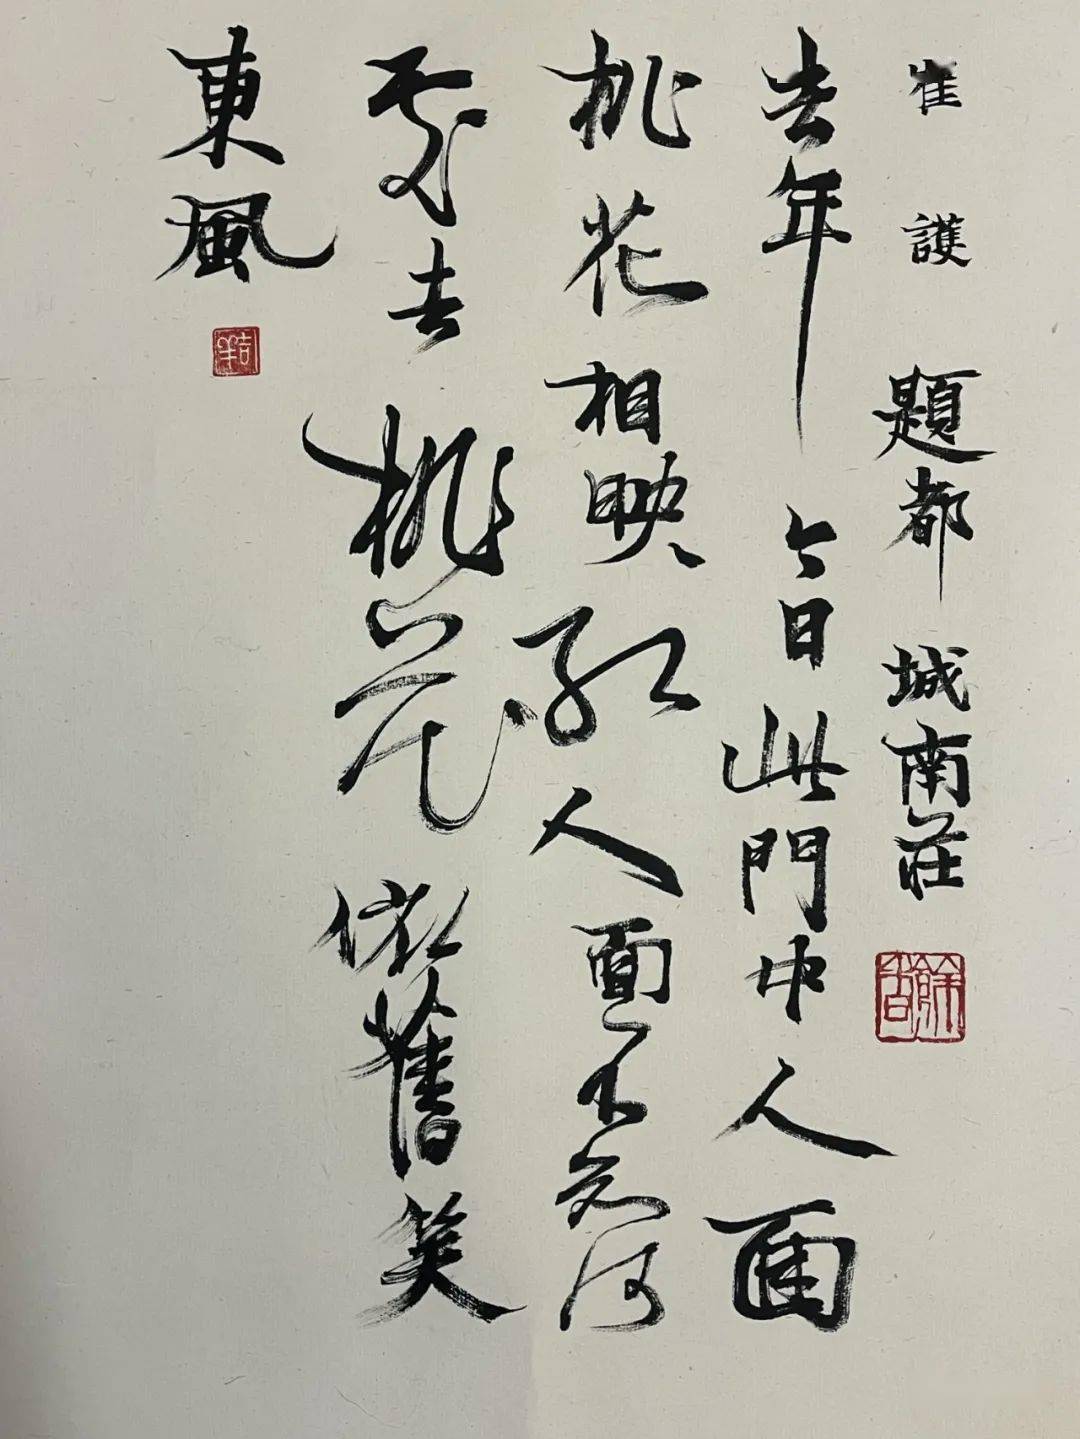 崔護 題都城南莊
餘香
去年今日此門中人面
桃花相映紅人面不知何
處去桃花依舊笑
東風
吉羊